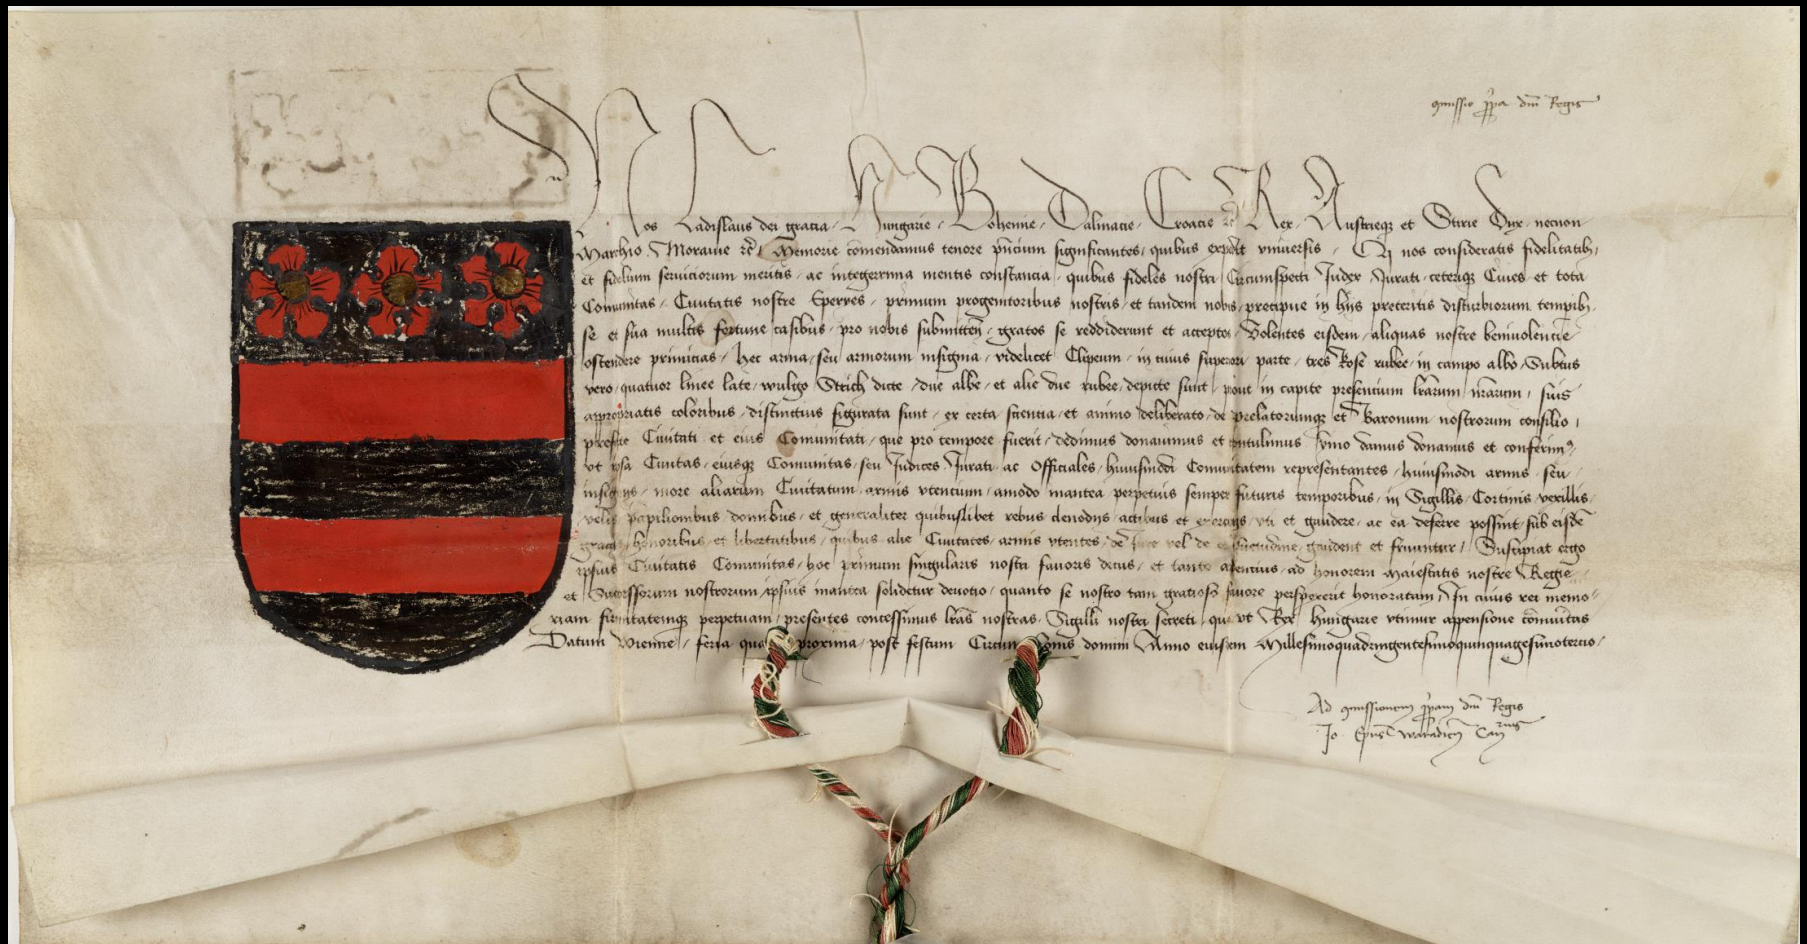 Comissio ppa dni Regis
Nos Ladislaus dei gracia Hungarie Bohemie Dalmacie Croacie etc Rex Austrieque et Stirie Dux necnon
Marchio Moravie etc Memorie comendamus tenore pncium significantes quibus expedit vniuersis Qz nos consideratis fidelitatibz
et fidelium seruiciorum meritis ac integerrima mentis constancia quibus fideles nostri Circumspecti Iudex Iurati ceterique Ciues et tota
Comunitas Ciuitatis nostre Eperyes primum progenitoribus nostris et tandem nobis precipue in hijs preteritis disturbiorum tempibz
se et sua multis fortune casibus pro nobis submitten gratos se reddiderunt et acceptos Volentes eisdem aliquas nostre beniuolencie
ostendere primicias hec arma seu armorum insignia videlicet Clipeum in cuius superori parte tres Rose rubee in campo albo Subtus
vero quatuor linee late wulgo Strich dicte due albe et alie due rubee depicte sunt put in capite presencium lrarum nrarum suis
appropriatis coloribus distinctius figurata sunt ex certa sciencia et animo deliberato de prelatorumque et Baronum nostrorum consilio
prefate Ciuitati et eius Comunitati que pro tempore fuerit dedimus donauimus et contulimus ymo damus donamus et conferimus
vt ipsa Ciuitas eiusque Comunitas seu Iudices Iurati ac Officiales huiusmodi Comunitatem representantes huiusmodi armis seu
insignijs more aliarum Ciuitatum armis vtencium amodo inantea perpetuis semper futuris temporibus in Sigillis Cortinis vexillis
velis papilionibus domibus et generaliter quibuslibet rebus clenodijs actibus et exercicijs vti et gaudere ac ea deferre possint sub eisde
gracijs honoribus et libertatibus quibus alie Ciuitates armis vtentes de iure vel de consuetudine gaudent et fruuntur Suscipiat ergo
ipsius Ciuitatis Comunitas hoc primum singularis nostri fauoris decus et tanto ad honorem Maiestatis nostre Regie
et Successorum nostrorum ipsius inantea solidetur deuotio quanto se nostro tam gratioso fauore perspexerit honoratam In cuius rei memo
riam firmitatemque perpetuam presentes concessimus lras nostras Sigilli nostri secreti quo vt Rex Hungarie vtimur appensione comunitas
Datum Vienne feria proxima post festum Circumcisionis domini Anno eiusdem Millesimoquadringentesimoquinquagesimotercio
Ad comissionem ppam dni Regis
Jo Epus Waradien Cancellarius